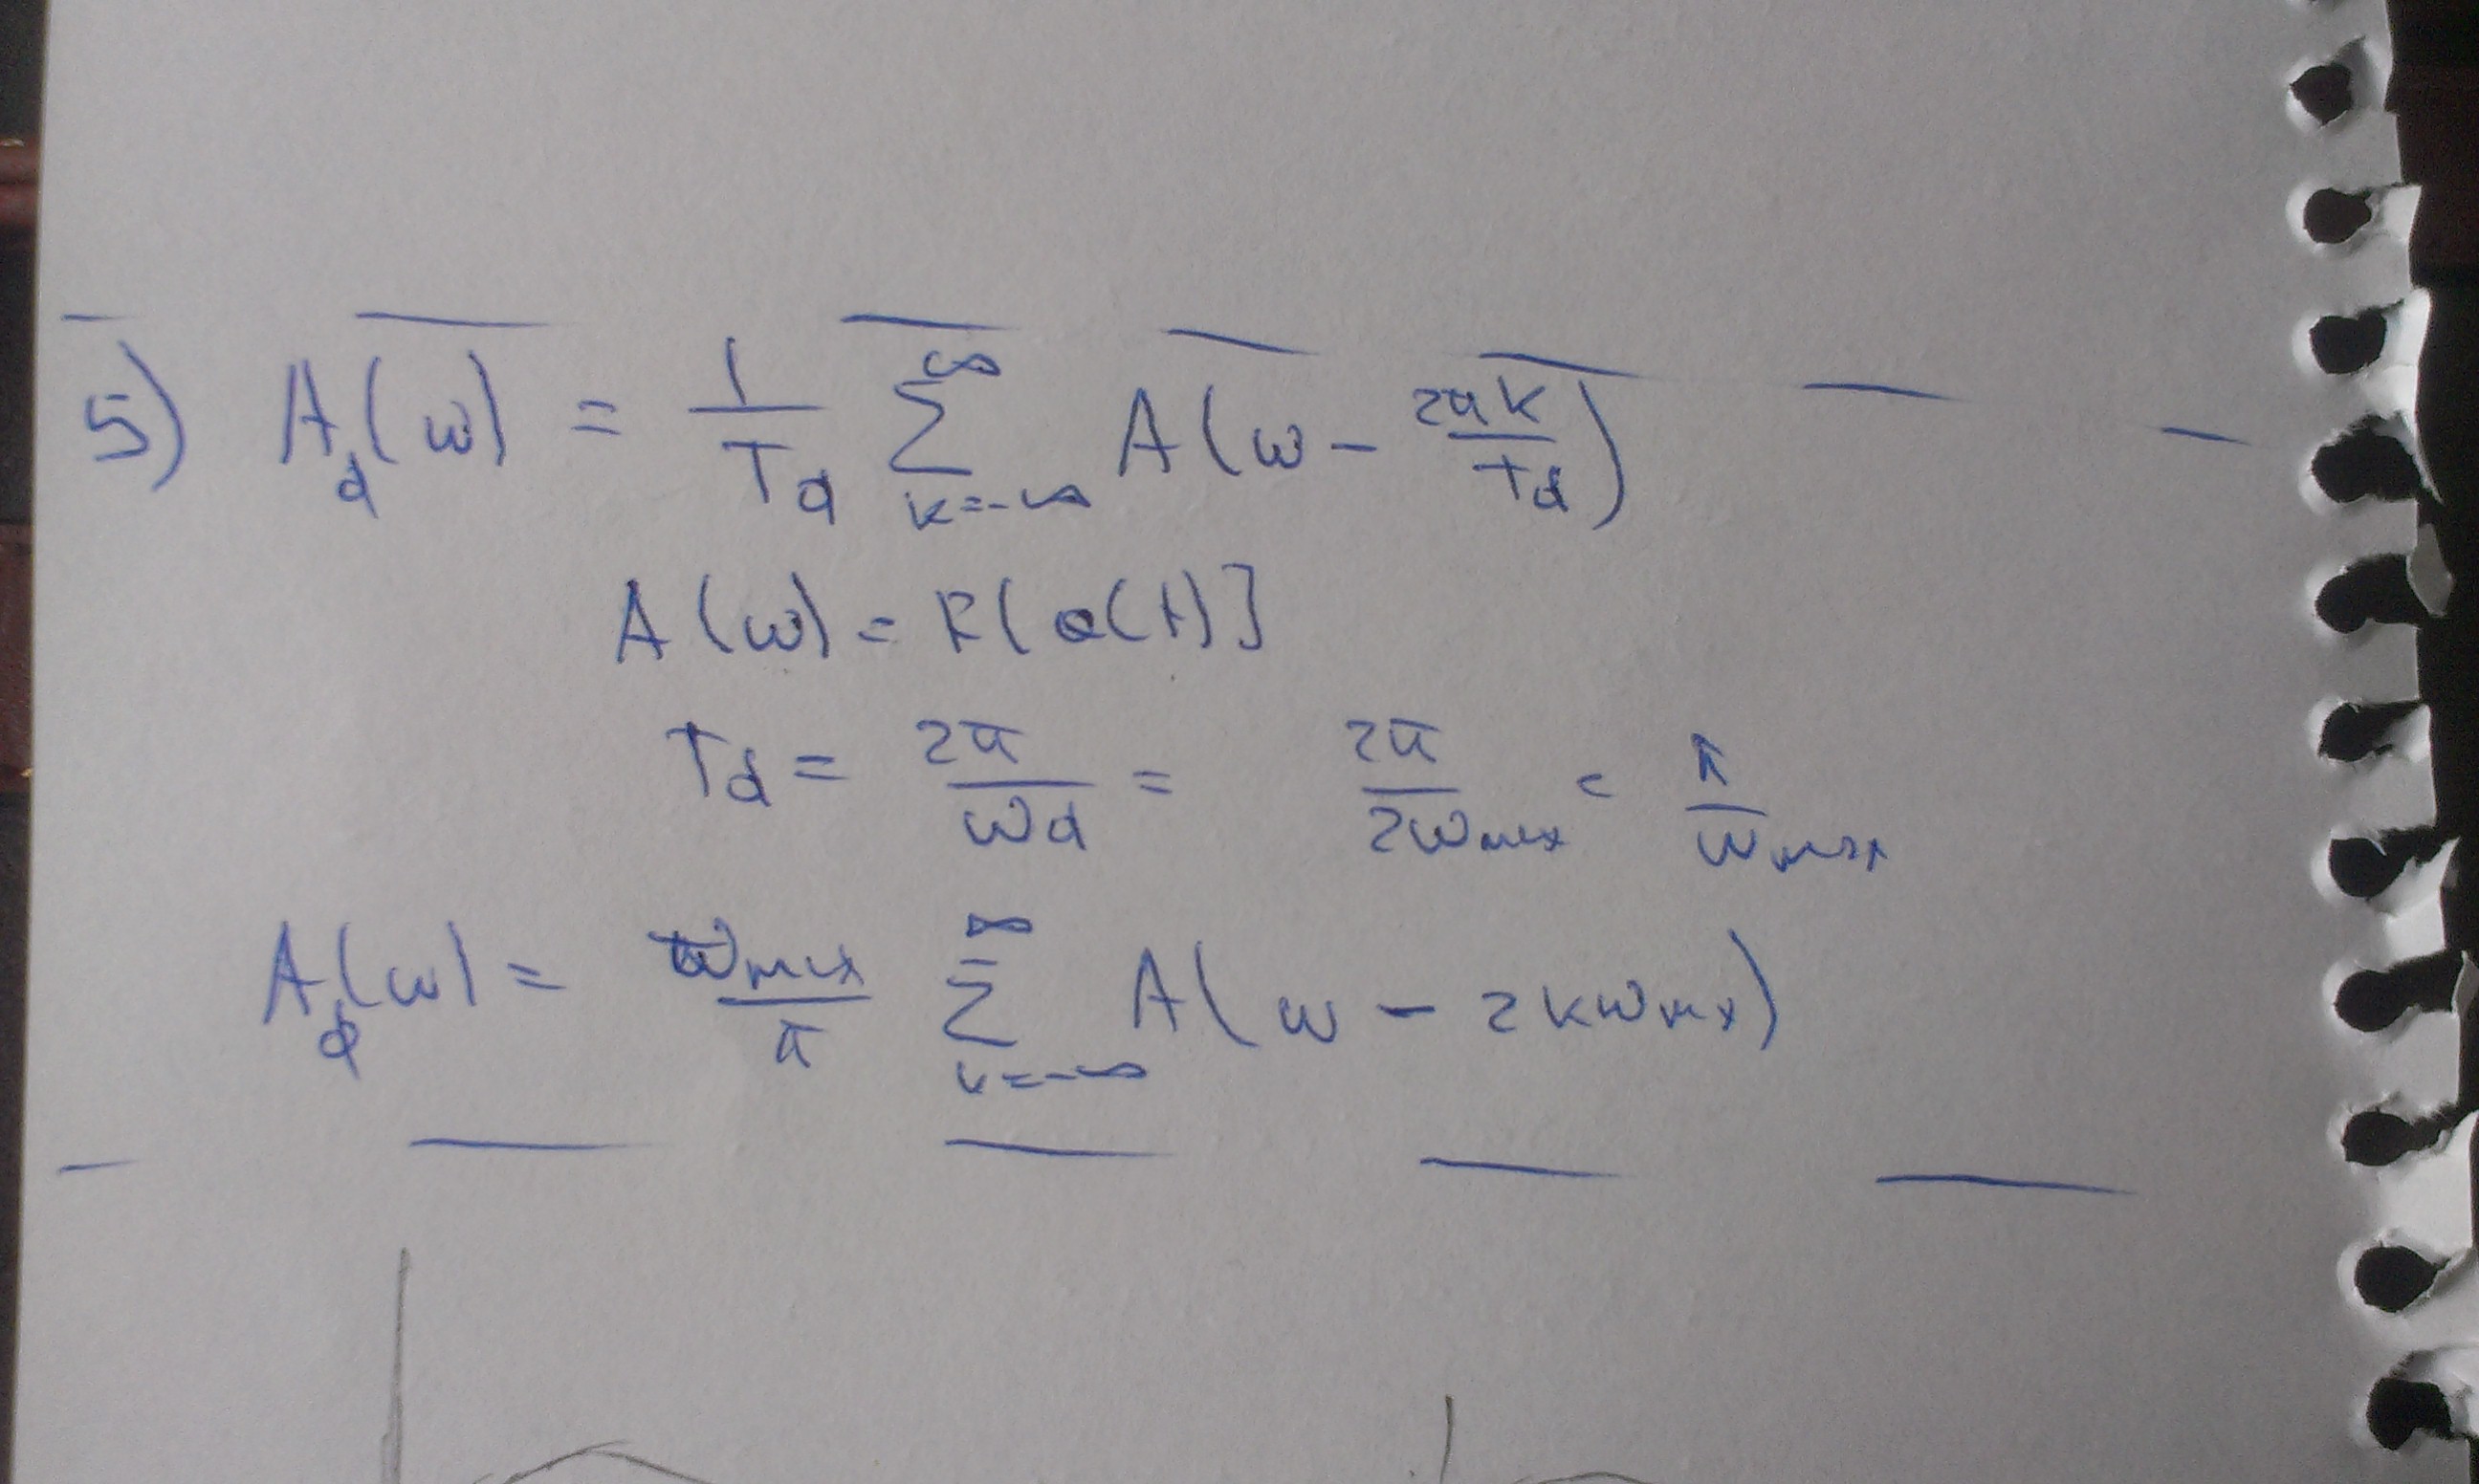 5) A_d(ω) = \frac{1}{T_d} \sum_{k=-∞}^{∞} A(ω - \frac{2πk}{T_d})
A(ω) = F[a(t)]
T_d = \frac{2π}{ω_d} = \frac{2π}{2ω_{max}} = \frac{π}{ω_{max}}
A_d(ω) = \frac{ω_{max}}{π} \sum_{k=-∞}^{∞} A(ω - 2kω_{max})